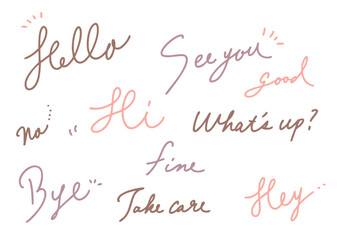 Hello
See you
good
no...
Hi
What's up?
fine
Bye
Take care
Hey